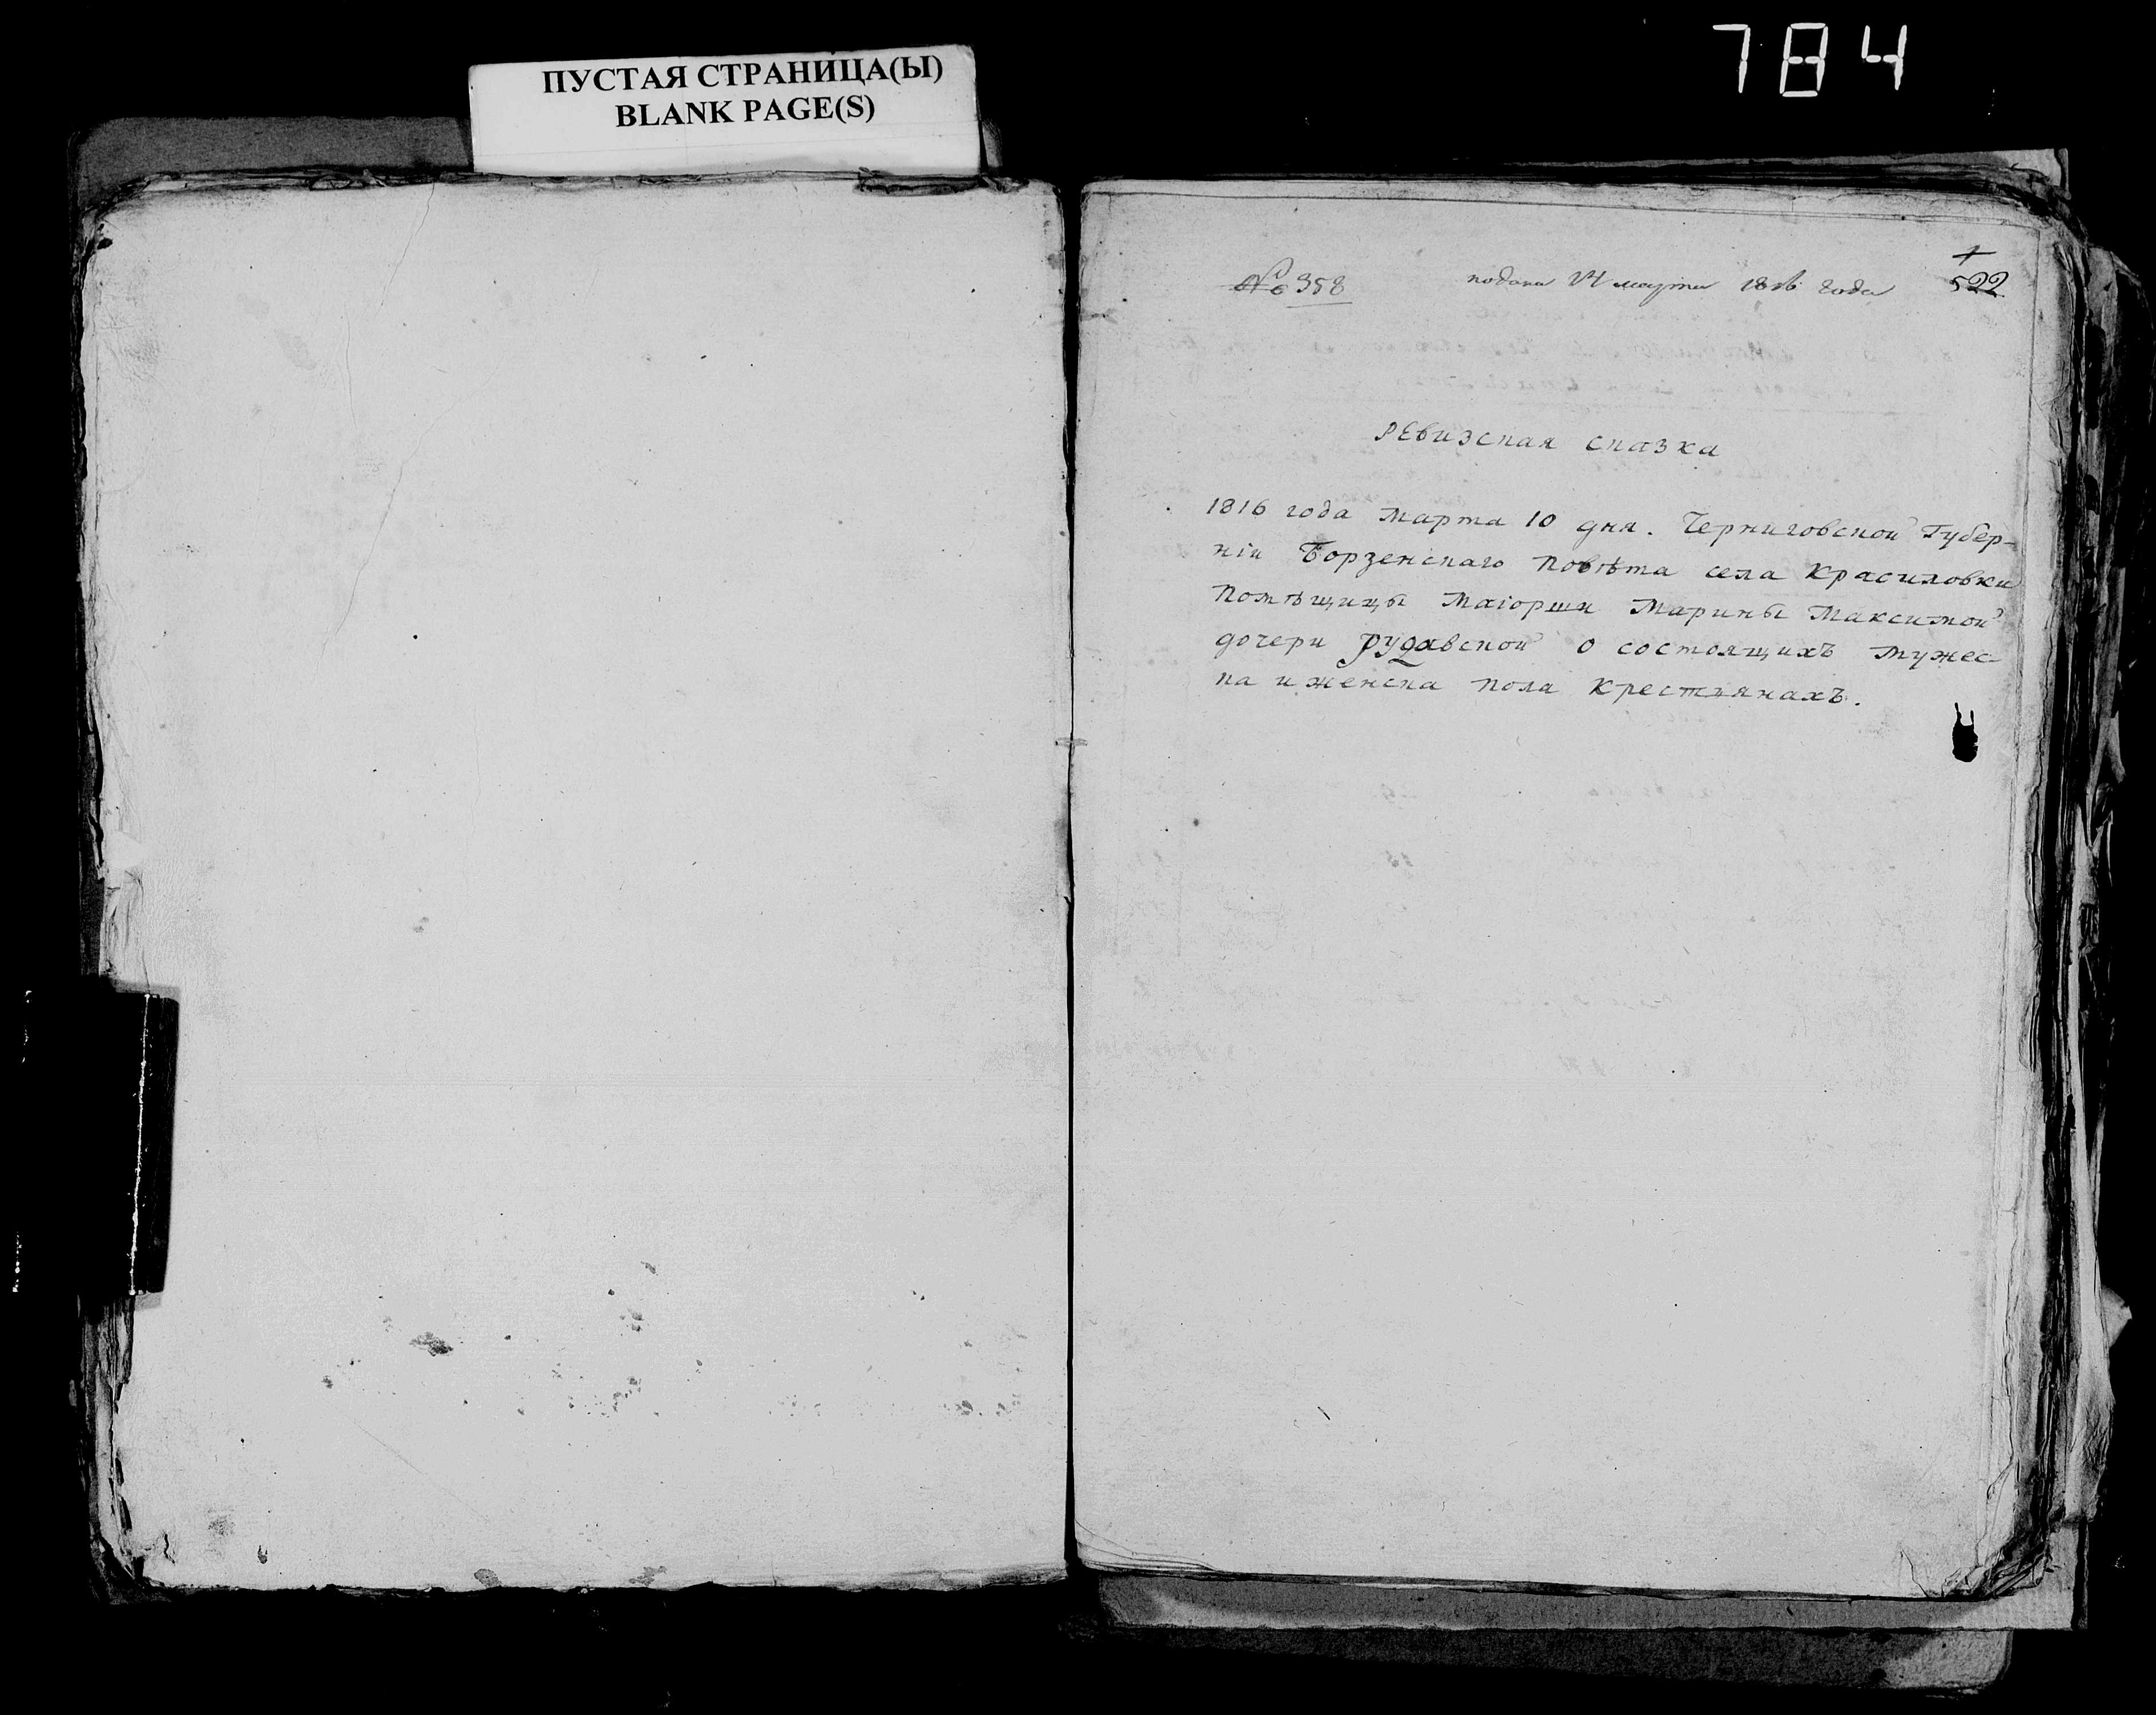 ПУСТАЯ СТРАНИЦА(Ы)
BLANK PAGE(S)
784
№ 358 подана 14 марта 1816 года 522
Ревизская сказка
1816 года марта 10 дня. Черниговской Губер-
ніи Борзенскаго повѣта села Красиловки
помѣщицы маіорши Марины Максимой
дочери Рудавской о состоящихъ мужес-
ка и женска пола крестьянахъ.